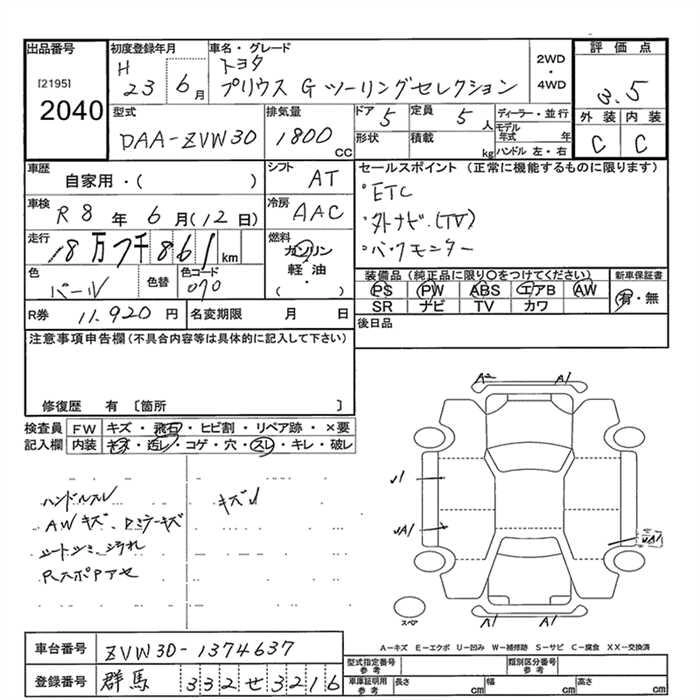 出品番号
[2195]
2040
初度登録年月
H 23 6月
車名・グレード
トヨタ
プリウス G ツーリングセレクション
2WD
・
4WD
評価点
3.5
外装 内装
C C
型式
DAA-ZVW30
排気量
1800 CC
ドア 5
形状
定員 5 人
積載 kg
ディーラー・並行
モデル年式 年
ハンドル 左・右
車歴
自家用・( )
シフト AT
車検
R8年6月(12日)
冷房 AAC
走行
18万7千861km
燃料
ガソリン
軽油・
( )
色
パール
色替
色コード
070
R券 11,920円
名変期限 月 日
セールスポイント (正常に機能するものに限ります)
・ETC
・外ナビ(TV)
・バックモニター
装備品(純正品に限り○をつけてください)
PS PW ABS エアB AW
SR ナビ TV カワ
新車保証書
有・無
後日品
注意事項申告欄(不具合内容等は具体的に記入して下さい)
修復歴 有 〔箇所 〕
検査員記入欄
FW キズ・飛石・ヒビ割・リペア跡・×要
内装 キズ・汚レ・コゲ・穴・スレ・キレ・破レ
ハンドルスレ
AWキズ、ドミラーキズ
シートシミ、汚れ
RスポPアセ
キズ
A2 A1
A1
A1 A1
スペア
A-キズ E-エクボ U-凹み W-補修跡 S-サビ C-腐食 XX-交換済
車台番号 ZVW30-1374637
登録番号 群馬 332せ3216
型式指定番号 参考
類別区分番号 参考
車庫証明用 参考
長さ cm 幅 cm 高さ cm